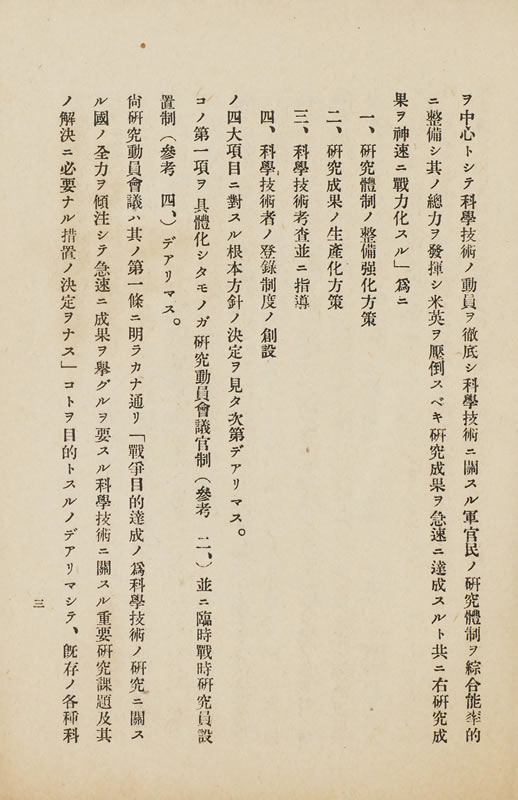 ヲ中心トシテ科學技術ノ動員ヲ徹底シ科學技術ニ關スル軍官民ノ硏究體制ヲ綜合能率的
ニ整備シ其ノ總力ヲ發揮シ米英ヲ壓倒スベキ硏究成果ヲ急速ニ達成スルト共ニ右硏究成
果ヲ神速ニ戰力化スル」爲ニ
一、硏究體制ノ整備强化方策
二、硏究成果ノ生產化方策
三、科學技術考査並ニ指導
四、科學技術者ノ登錄制度ノ創設
ノ四大項目ニ對スル根本方針ノ決定ヲ見タ次第デアリマス。
コノ第一項ヲ具體化シタモノガ硏究動員會議官制(參考 二、)並ニ臨時戰時硏究員設
置制(參考 四、)デアリマス。
尙硏究動員會議ハ其ノ第一條ニ明ラカナ通リ「戰爭目的達成ノ爲科學技術ノ硏究ニ關ス
ル國ノ全力ヲ傾注シテ急速ニ成果ヲ擧グルヲ要スル科學技術ニ關スル重要硏究課題及其
ノ解決ニ必要ナル措置ノ決定ヲナス」コトヲ目的トスルノデアリマシテ、旣存ノ各種科
三